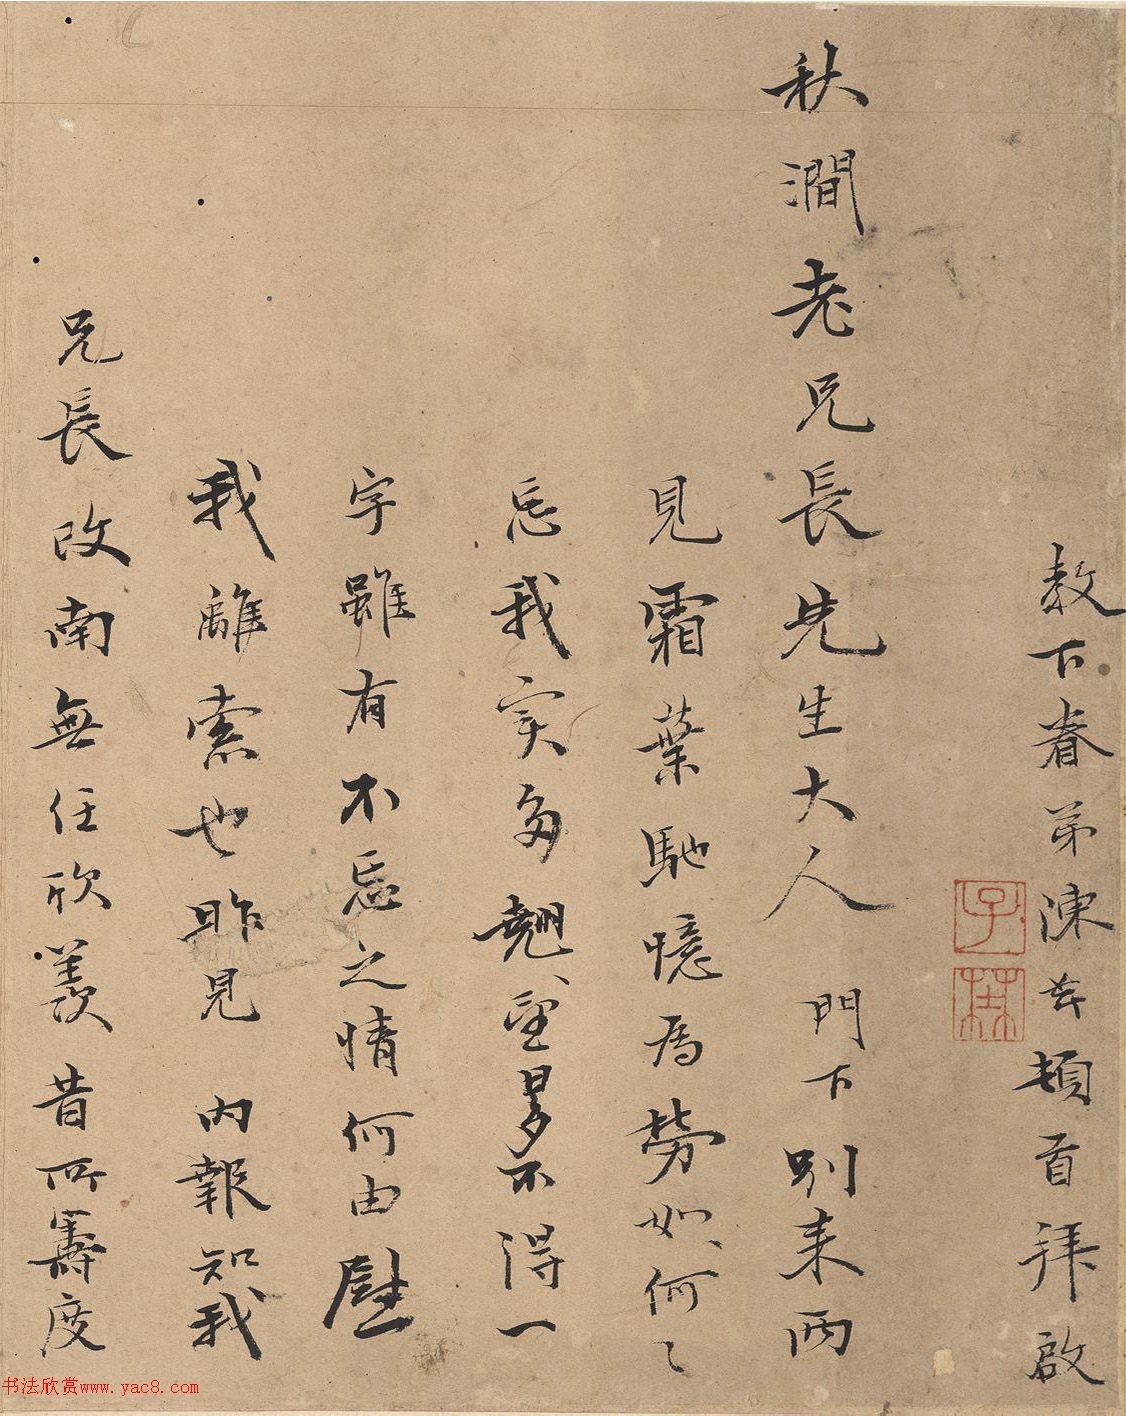 教下眷弟陳芸頓首拜啟
秋澗老兄長先生大人 門下別来两
見霜葉馳憶為勞如何〻
忘我实多翹望累不得一
字雖有不忘之情何由慰
我離索也昨見 内報知我
兄長改南無任欣羨昔所籌度
子
书法欣赏www.yac8.com